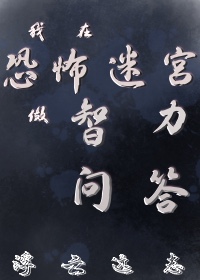 我 在
恐 怖 迷 宫
做 智 力
问 答
云 志